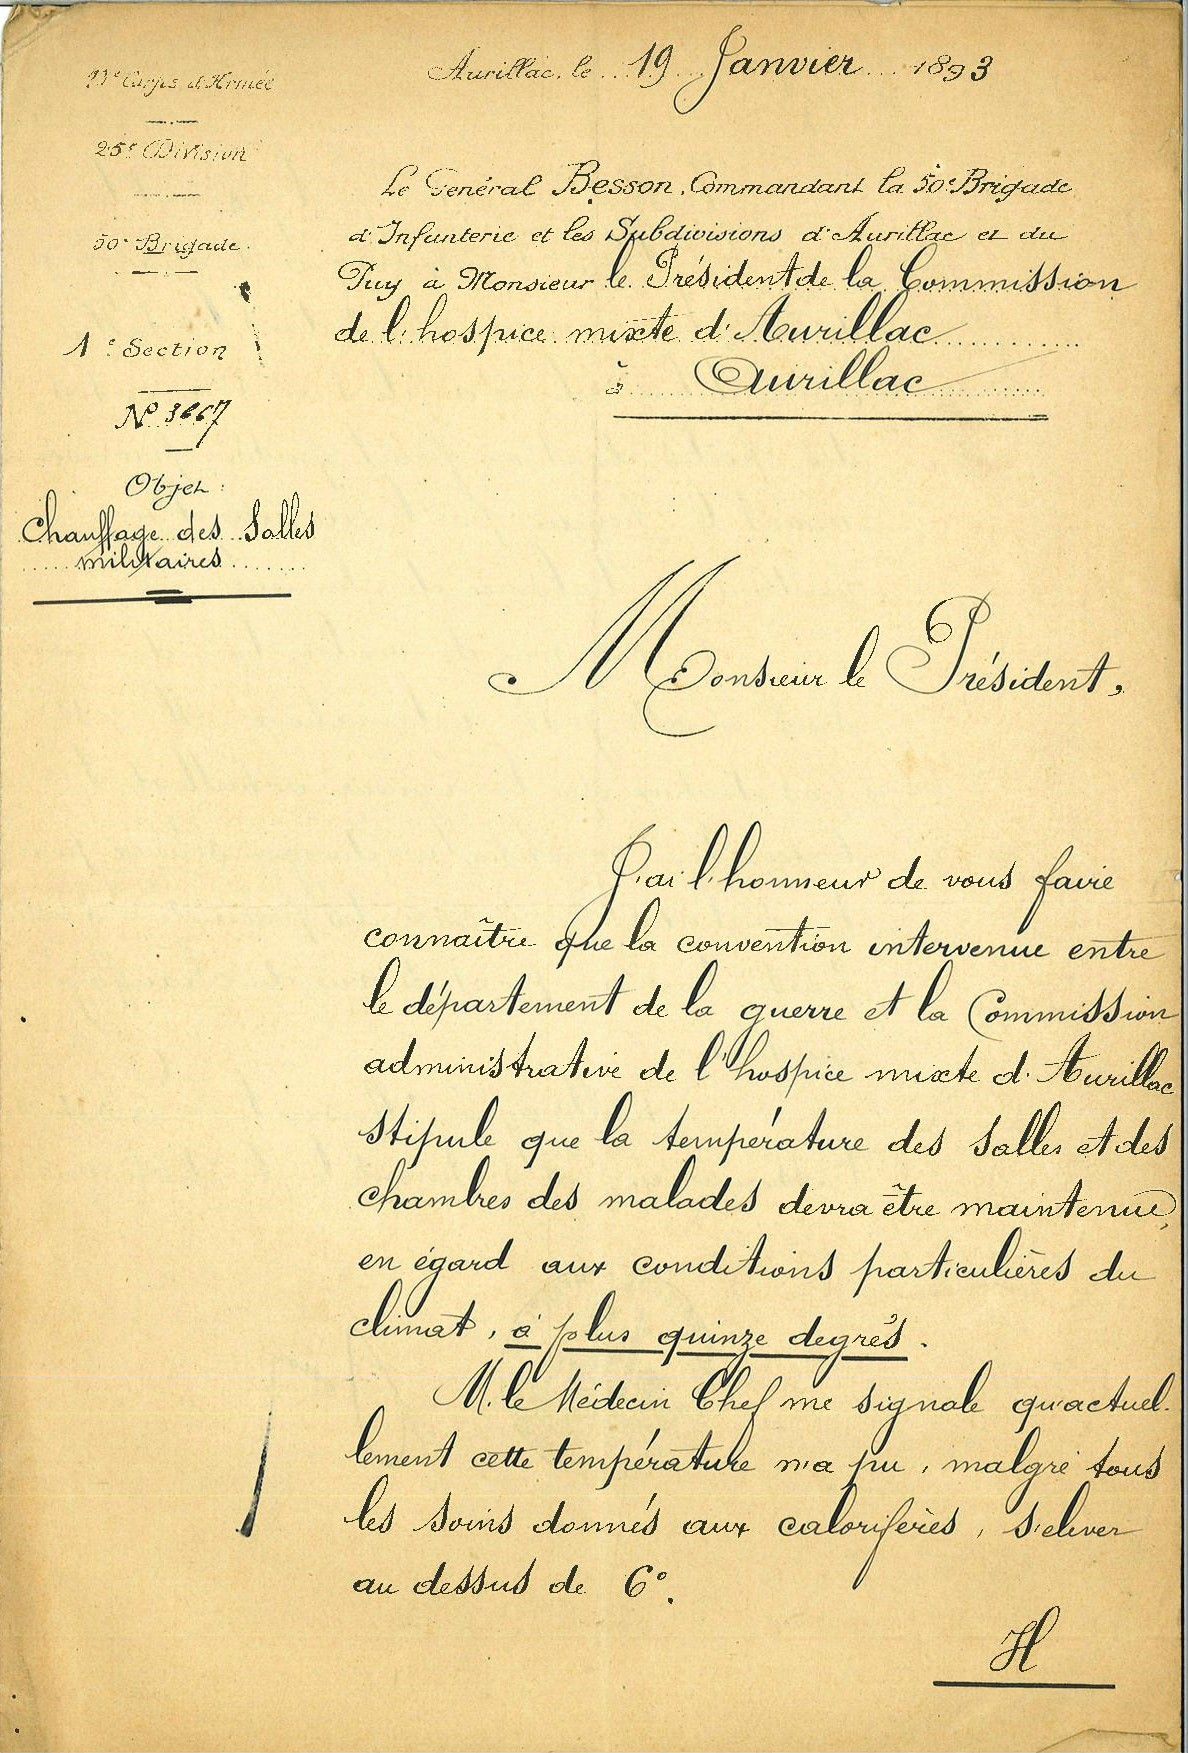 Aurillac, le 19 Janvier 1893
13e Corps d'Armée
25e Division
50e Brigade.
1e Section
No
Objet:
Chauffage des Salles
militaires
Le Général Besson, Commandant la 50e Brigade
d'Infanterie et les Subdivisions d'Aurillac et du
Puy à Monsieur le Président de la Commission
de l'hospice mixte d'Aurillac
à Aurillac
Monsieur le Président,
J'ai l'honneur de vous faire
connaître que la convention intervenue entre
le département de la guerre et la Commission
administrative de l'hospice mixte d'Aurillac
stipule que la température des Salles et des
chambres des malades devra être maintenue,
en égard aux conditions particulières du
climat, à plus quinze degrés.
M. le Médecin Chef me signale qu'actuel-
lement cette température n'a pu, malgré tous
les soins donnés aux calorifères, s'élever
au dessus de 6°.
H